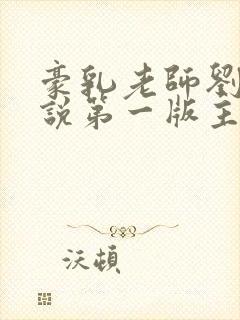 豪乳老師劉
說第一版主
沃頓